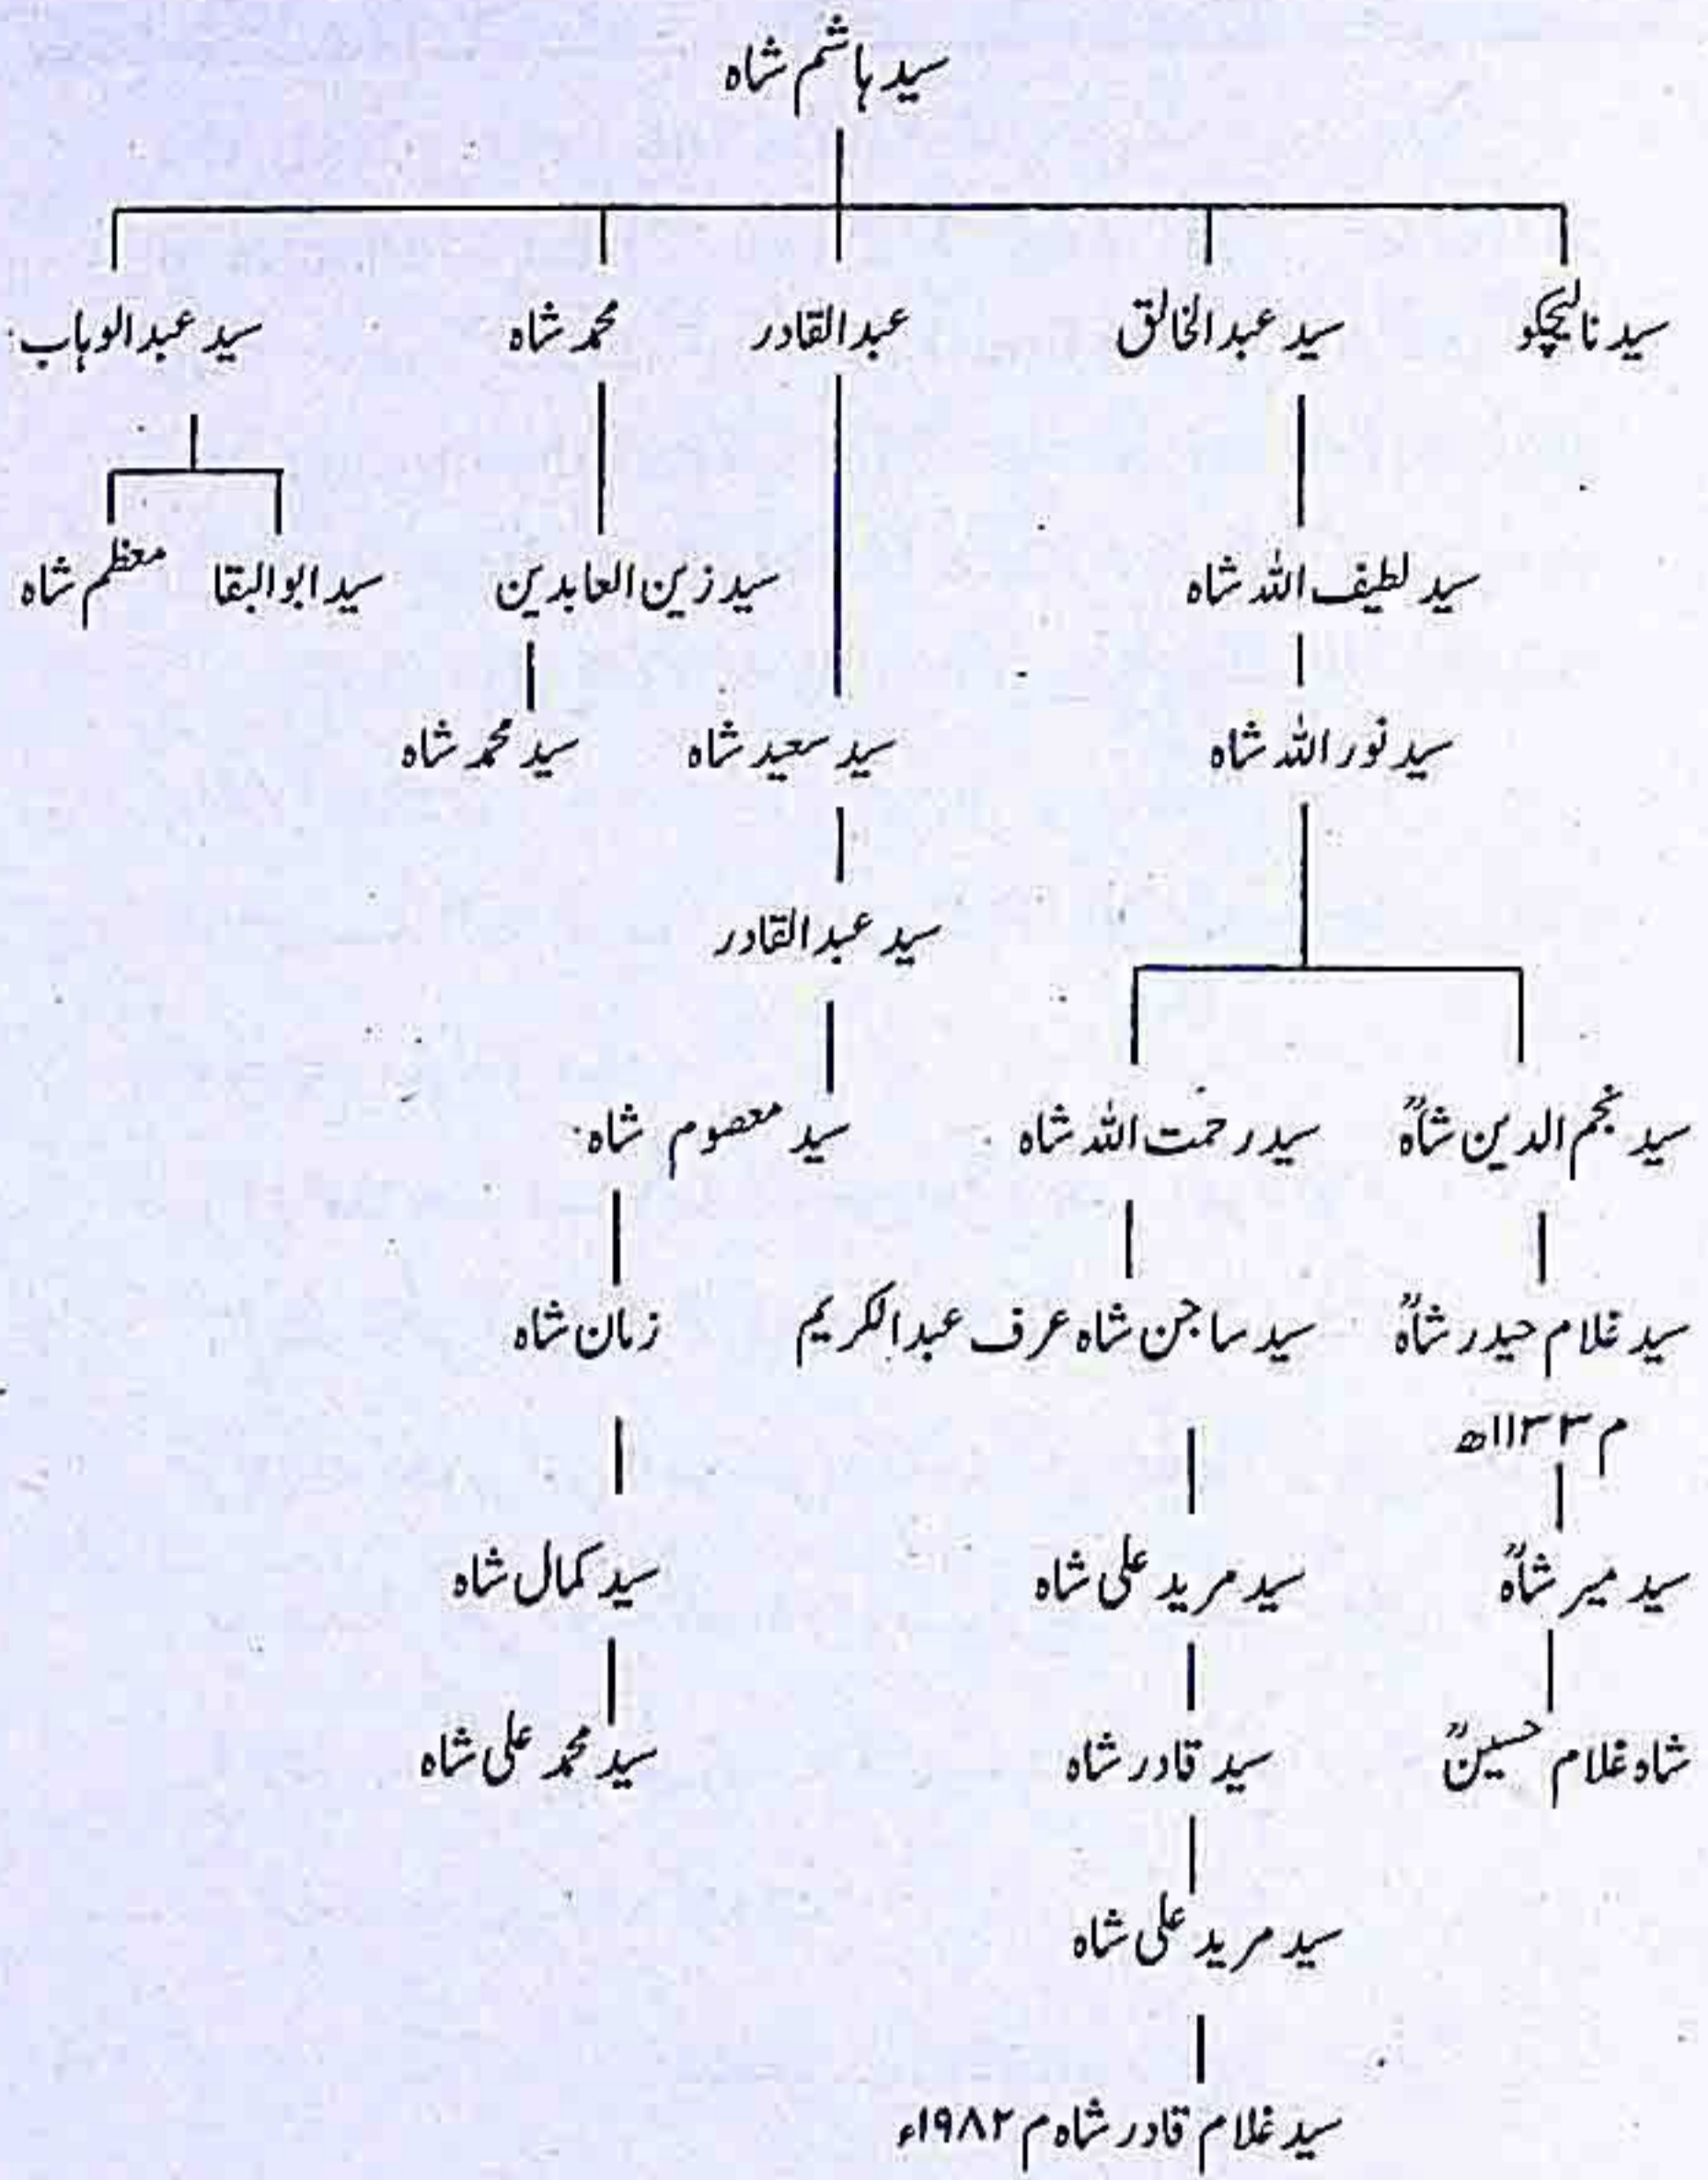 سید ہاشم شاہ
سید نالیچکو سید عبدالخالق عبدالقادر محمد شاہ سید عبدالوہاب
سید لطیف اللہ شاہ سید زین العابدین سید ابوالبقا معظم شاہ
سید نور اللہ شاہ سید سعید شاہ سید محمد شاہ
سید عبدالقادر
سید نجم الدین شاہؒ سید رحمت اللہ شاہ سید معصوم شاہ
سید غلام حیدر شاہؒ سید ساجن شاہ عرف عبدالکریم زمان شاہ
م ۱۱۳۳ھ
سید میر شاہؒ سید مرید علی شاہ سید کمال شاہ
شاہ غلام حسینؒ سید قادر شاہ سید محمد علی شاہ
سید مرید علی شاہ
سید غلام قادر شاہ م ۱۹۸۲ء